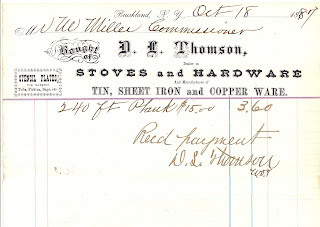 Buskland, N.Y. Oct 18 1887
J W Miller Commissioner
Bought of D. L. Thomson,
Dealer in
STOVES and HARDWARE
And Manufacturer of
TIN, SHEET IRON and COPPER WARE.
STENCIL PLATES
FOR MARKING
240 ft Plank $15.00 3.60
Recd payment
D. L. Thomson